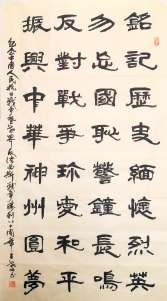 銘記歷史緬懷烈英
勿忘國恥警鐘長鳴
反對戰爭珍愛和平
振興中華神州圓夢
紀念中國人民抗日戰爭暨世界反法西斯戰爭勝利八十周年